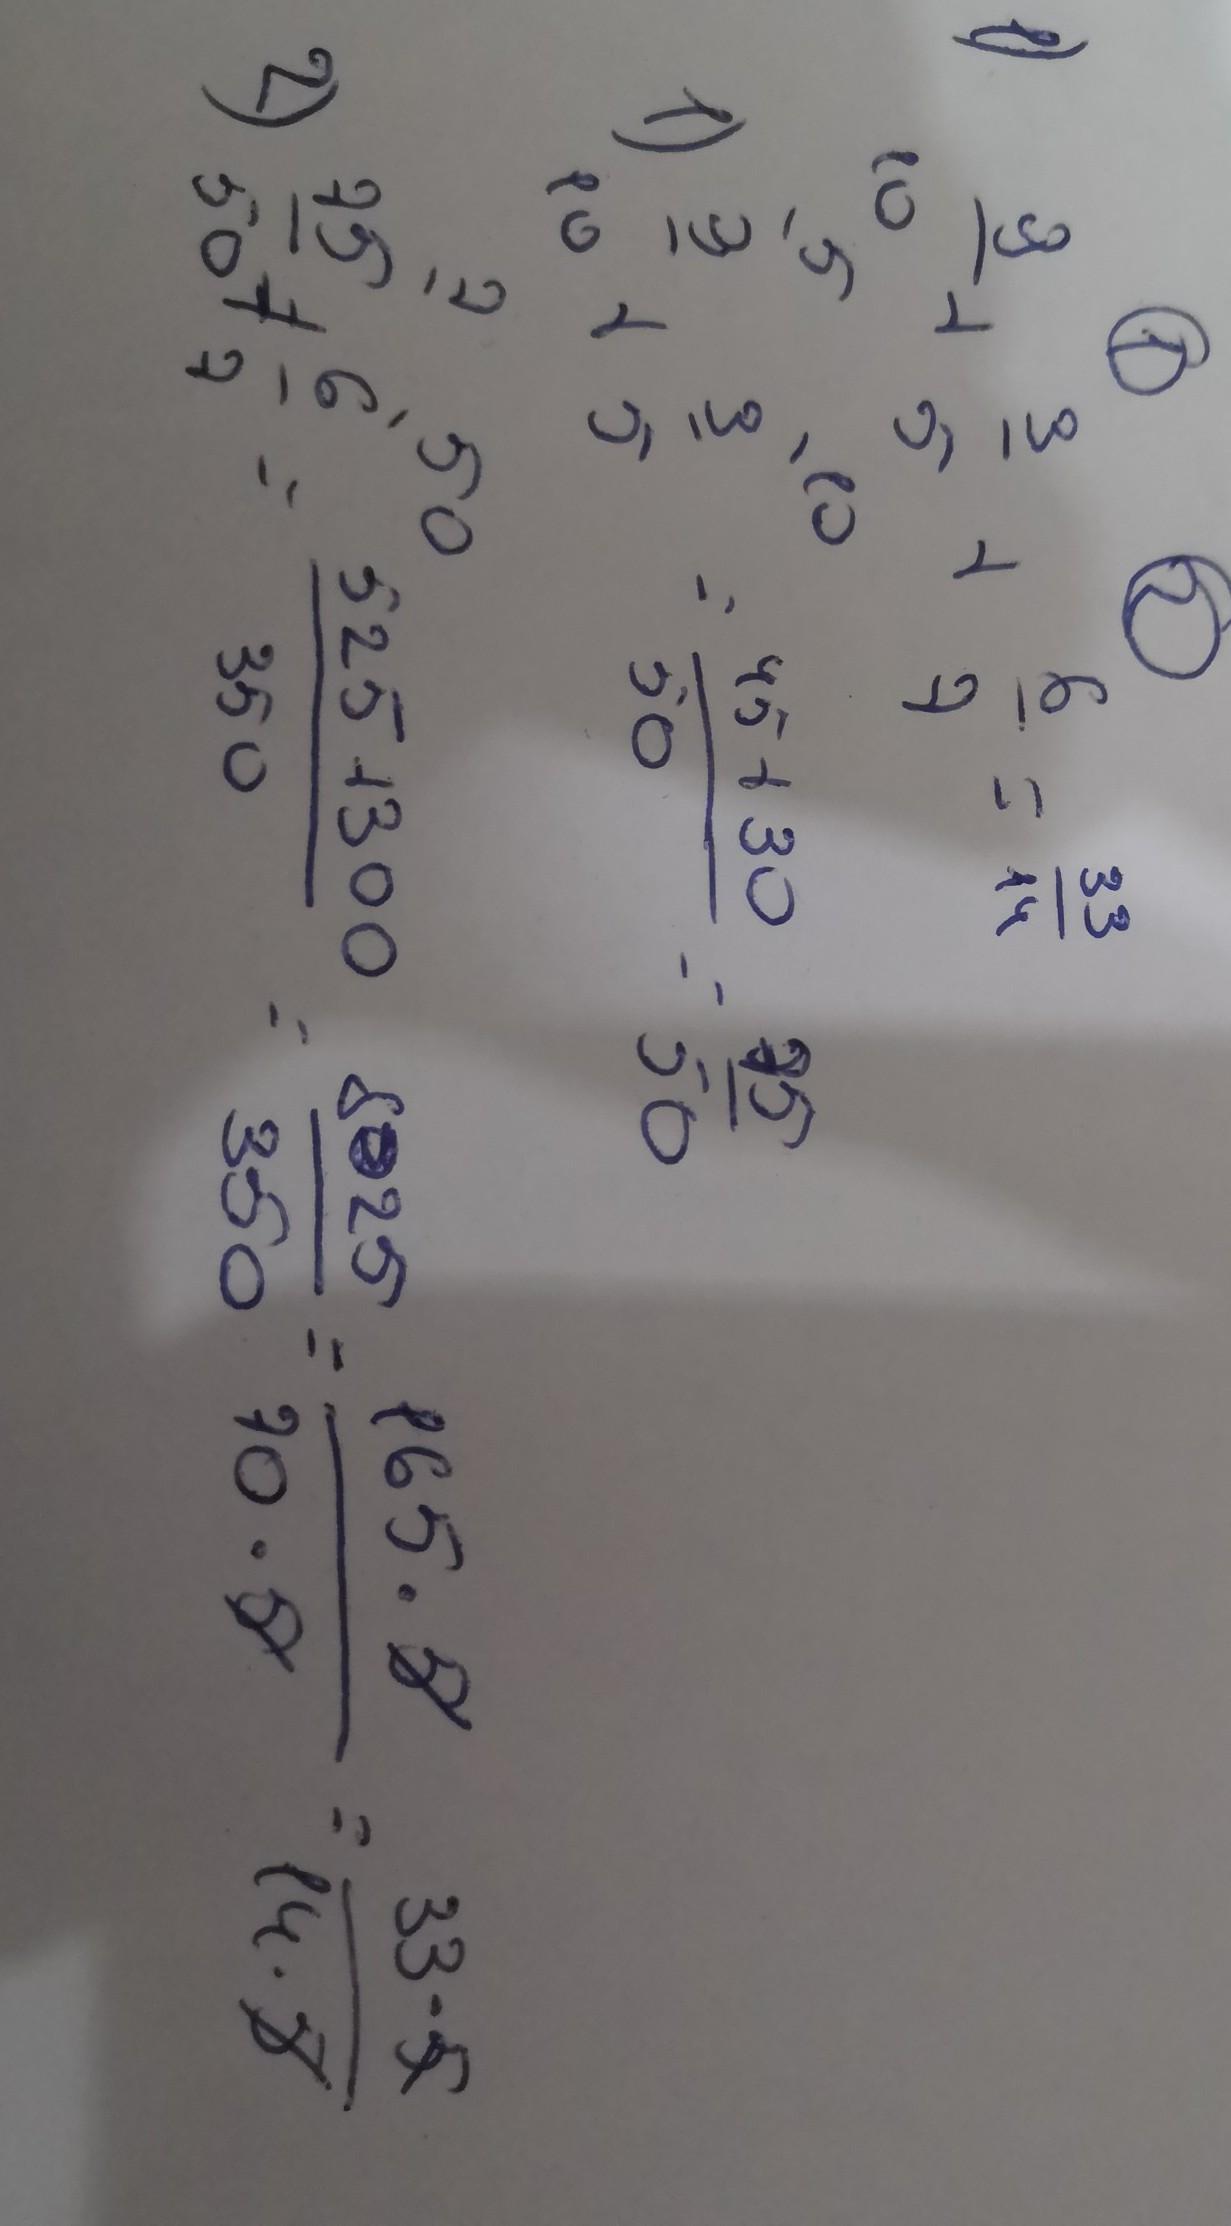 ① ②
1) 9/10 + 3/5 + 6/7 = 33/14
1) 9/10 ^5 + 3/5 ^10 = 45+30/50 = 75/50
2) 75/50 ^7 + 6/7 ^50 = 525+300/350 = 825/350 = 165·5/70·5 = 33·5/14·5